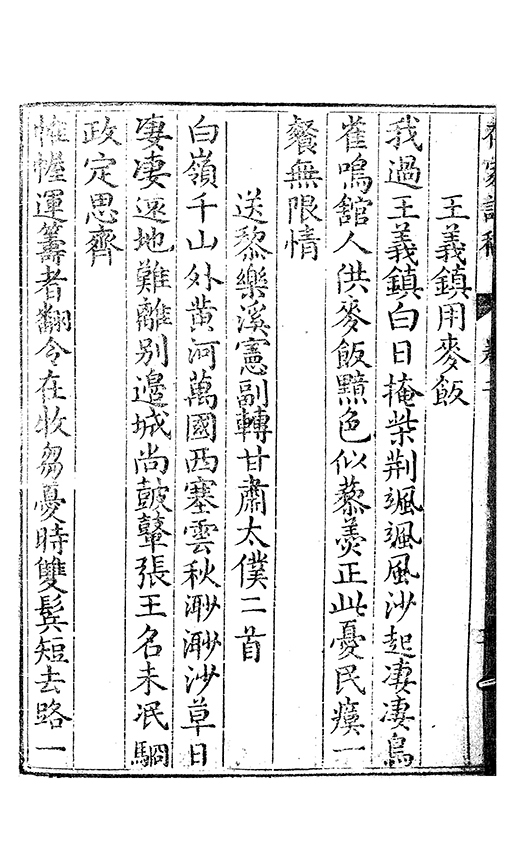 卷二
王義鎮用麥飯
我過王義鎮白日掩柴荆颯颯風沙起凄凄鳥
雀鳴舘人供麥飯黯色似藜羮正此憂民瘼一
餐無限情
送黎樂溪憲副轉甘肅太僕二首
白嶺千山外黄河萬國西塞雲秋漠漠沙草日
凄凄遠地難離别邉城尚鼓鼙張王名未冺駉
政定思齊
帷幄運籌者翻令在牧芻憂時雙鬂短去路一